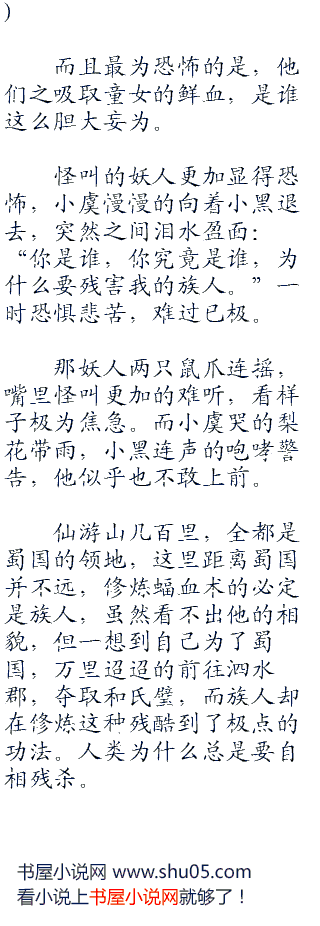 )
而且最为恐怖的是，他
们之吸取童女的鲜血，是谁
这么胆大妄为。
怪叫的妖人更加显得恐
怖，小虞慢慢的向着小黑退
去，突然之间泪水盈面：
“你是谁，你究竟是谁，为
什么要残害我的族人。”一
时恐惧悲苦，难过已极。
那妖人两只鼠爪连摇，
嘴里怪叫更加的难听，看样
子极为焦急。而小虞哭的梨
花带雨，小黑连声的咆哮警
告，他似乎也不敢上前。
仙游山几百里，全都是
蜀国的领地，这里距离蜀国
并不远，修炼蝠血术的必定
是族人，虽然看不出他的相
貌，但一想到自己为了蜀
国，万里迢迢的前往泗水
郡，夺取和氏璧，而族人却
在修炼这种残酷到了极点的
功法。人类为什么总是要自
相残杀。
书屋小说网 www.shu05.com
看小说上书屋小说网就够了！